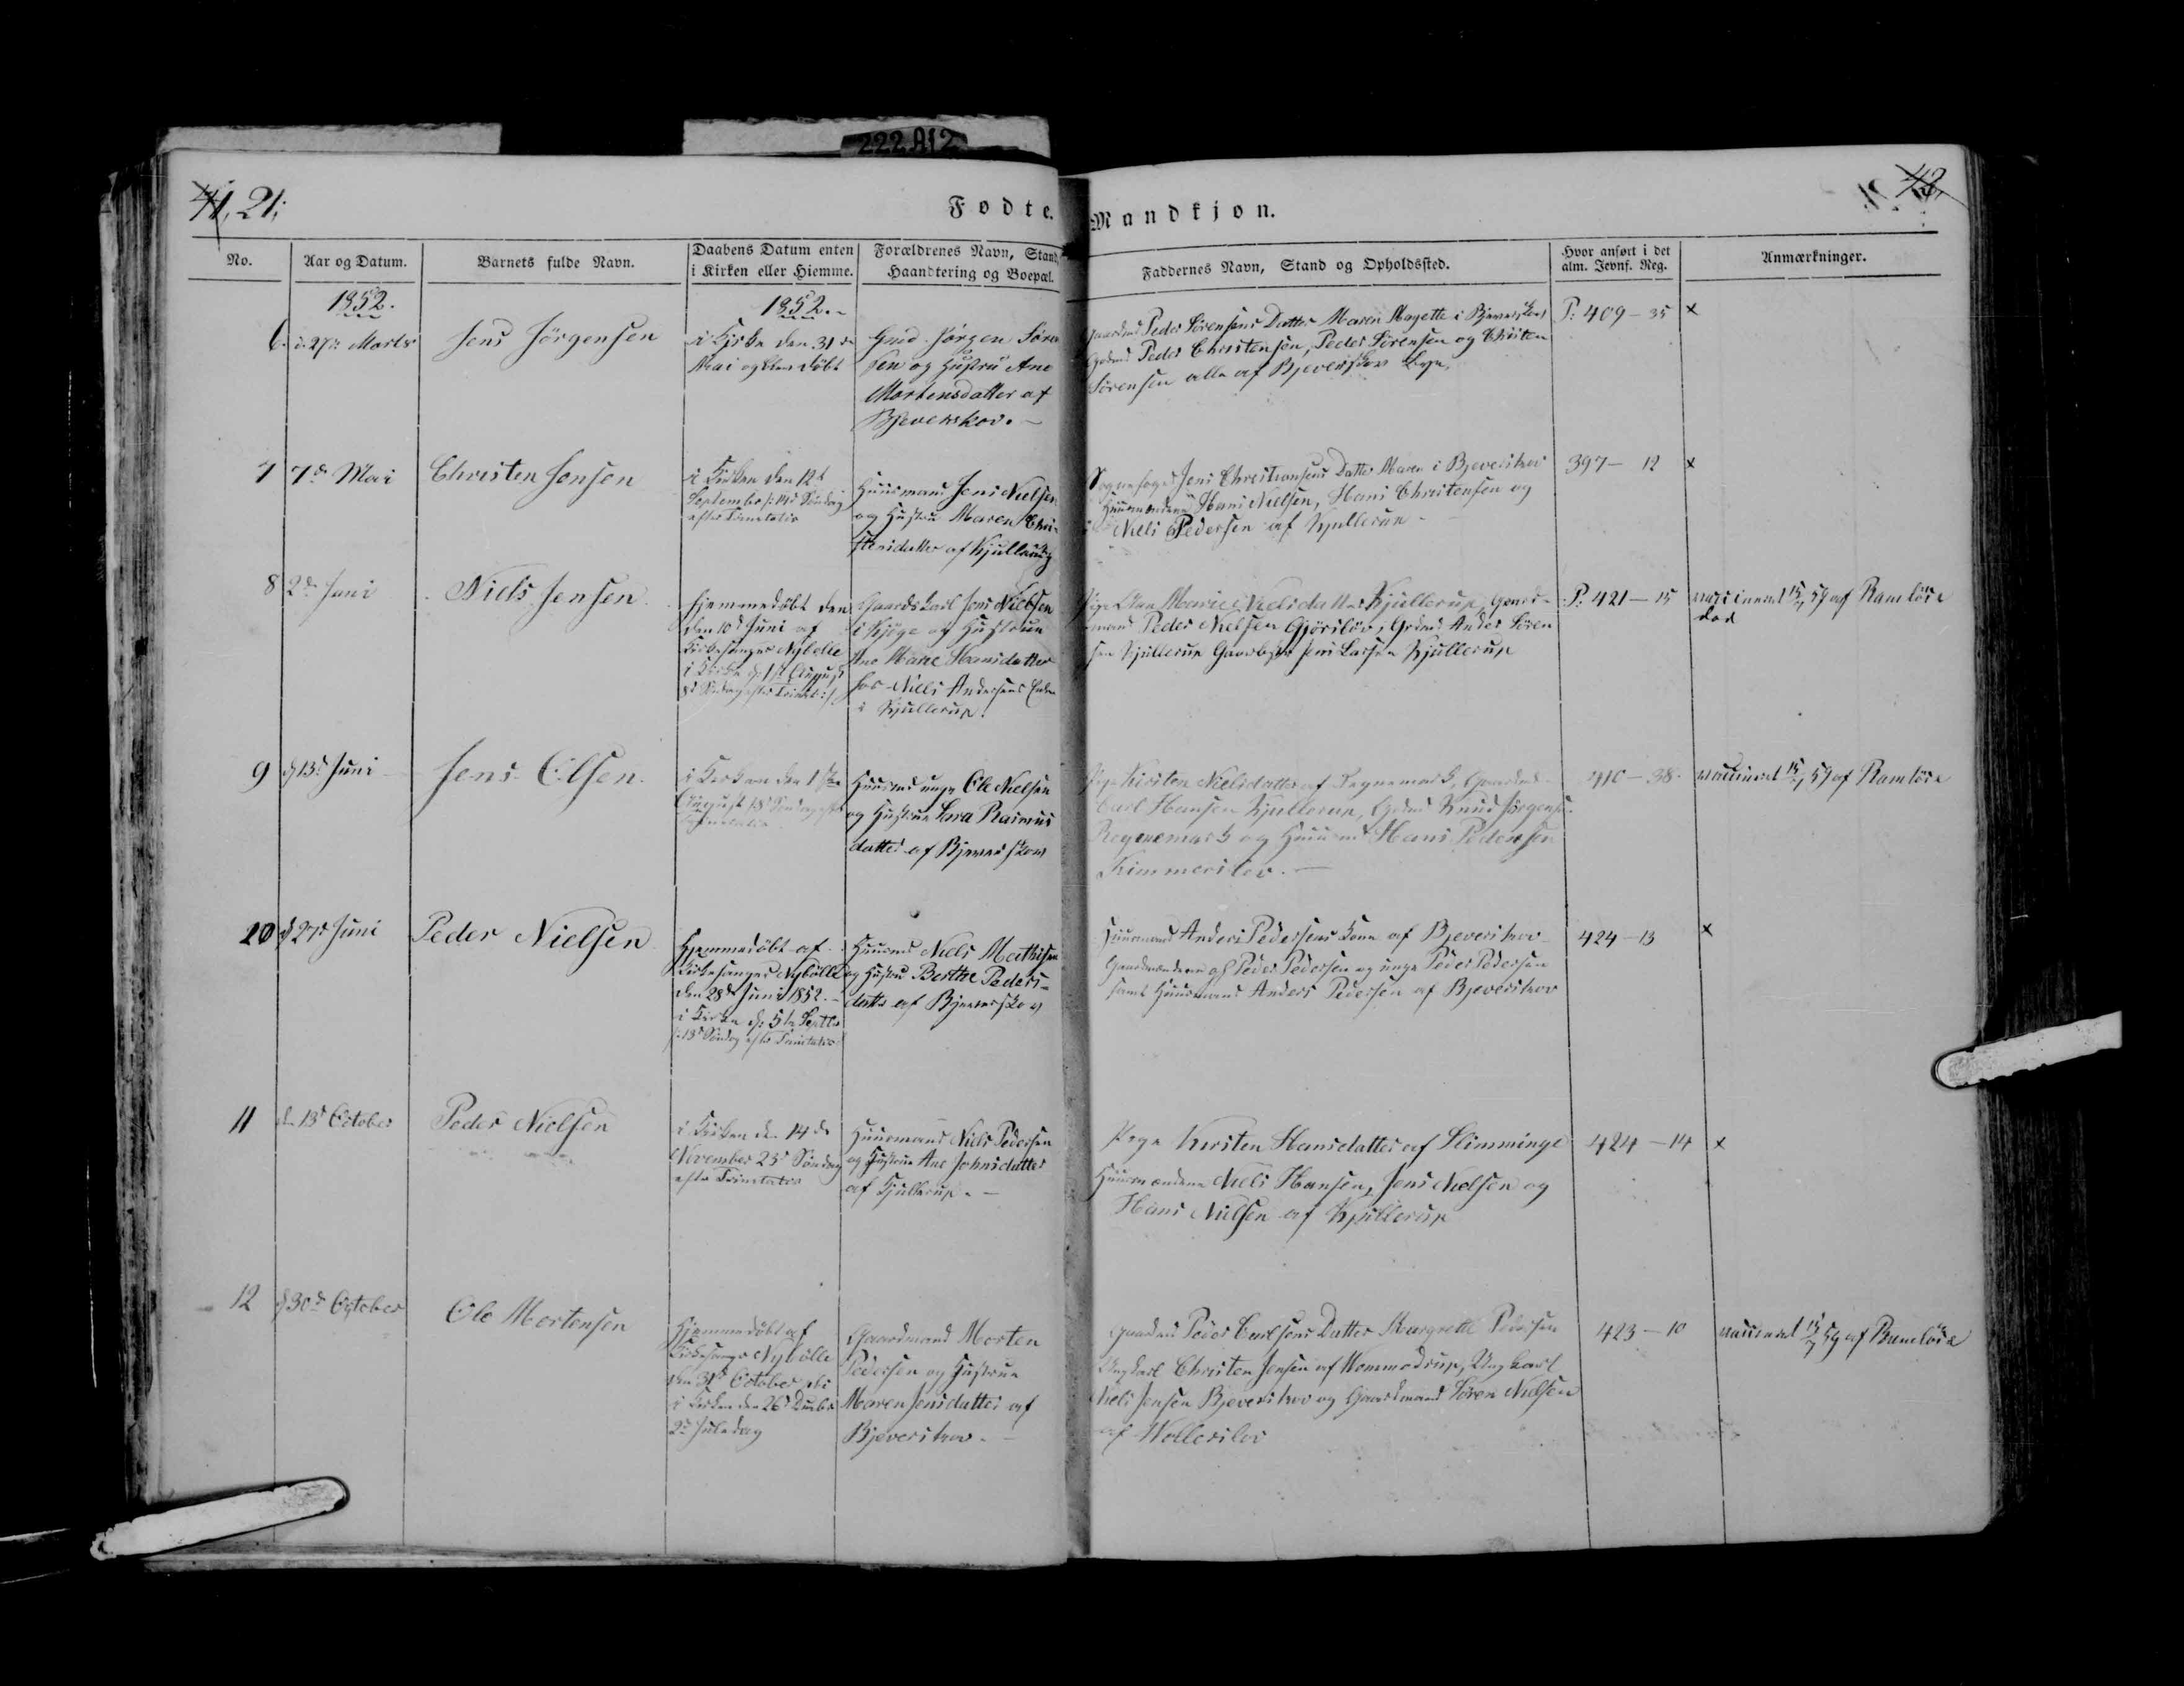 222 A12
41, 21,
Fødte.
Mandkjøn.
43,
No.
Aar og Datum.
Barnets fulde Navn.
Daabens Datum enten
i Kirken eller Hiemme.
Forældrenes Navn, Stand,
Haandtering og Boepæl.
Faddernes Navn, Stand og Opholdssted.
Hvor anført i det
alm. Jevnf. Reg.
Anmærkninger.
1852.
6. d. 27de Marts
Jens Jørgensen
1852.
i Kirke den 31de
Mai døbt
Gmd. Jørgen Søren
sen og Hustru Ane
Mortensdatter af
Bjeverskov.
Gaardmd Peder Sørensens Datter Maren Magrette i Bjeverskov
Grdmd Peder Christensen, Peder Sørensen og Christen
Sørensen alle af Bjeverskov Bye.
P: 409 - 35
x
7
7de Mai
Christen Jensen
i Kirken den 12te
September 14de Søndag
efter Trinitatis
Huusmand Jens Nielsen
og Hustru Maren Chri-
stensdatter af Kjullerup
Sognefoged Jens Christiansens Datter Maren i Bjeverskov
Huusmændene Hans Nielsen, Hans Christensen og
Niels Pedersen af Kjullerup
397 - 12
x
8
2de Juni
Niels Jensen
Hjemmedøbt den
den 10de Juni af
Kirkesanger Nybølle
i Kirke d. 1ste August
8de Søndag efter Trinit:
Gaardskarl Jens Nielsen
i Kjøge og Hustrue
Ane Marie Hansdatter
hos Niels Andersens Enke
i Kjullerup.
Pige Ane Marie Nielsdatter Kjullerup, Gaard-
mand Peder Nielsen Gjørsløv, Grdmd Anders Søren
sen Kjullerup Jens Larsen Kjullerup
P: 421 - 15
vaccineret 15/7 59 af Ramløse
død
9
d 13de Juni
Jens Olsen
i Kirken den 1ste
August 8de Søndag efter
Trinitatis
Huusmd unge Ole Nielsen
og Hustrue Sara Rasmus
datter af Bjeverskov
Pige Kirsten Nielsdatter af Regnemark, Gaardmd
Carl Hansen Kjullerup, Grdmd Knud Jørgensen
Regnemark og Huusmd Hans Pedersen
Kimmerslev.
410 - 38.
vaccineret 15/7 59 af Ramløse
10
d 27de Juni
Peder Nielsen
Hjemmedøbt af
Kirkesanger Nybølle
den 28de Juni 1852.
i Kirke d: 5te Septbr
13de Søndag efter Trinitatis
Huusmd Niels Mathisen
og Hustru Berthe Peders-
datter af Bjeverskov
Huusmand Anders Pedersens Kone af Bjeverskov
Gaardmændene Peder Pedersen og unge Peder Pedersen
samt Huusmand Anders Pedersen af Bjeverskov
424 - 13
x
11
d. 13de October
Peder Nielsen
i Kirken d. 14de
November 23de Søndag
efter Trinitatis
Huusmand Niels Pedersen
og Hustrue Ane Johnsdatter
af Kjullerup.
Pige Kirsten Hansdatter af Slimminge
Huusmændene Niels Hansen, Jens Nielsen og
Hans Nielsen af Kjullerup
424 - 14
x
12
d 30de October
Ole Mortensen
Hjemmedøbt af
Kirkesanger Nybølle
den 31te October
i Kirken den 26de Decbr
2den Juledag
Gaardmand Morten
Pedersen og Hustrue
Maren Jensdatter af
Bjeverskov.
Gaardmd Peder Carlsens Datter Margrethe Pedersen
Ungkarl Christen Jensen af Vemmedrup, Ungkarl
Niels Jensen Bjeverskov og Gaardmand Søren Nielsen
af Vollerslev
423 - 10
vaccineret 15/7 59 af Ramløse